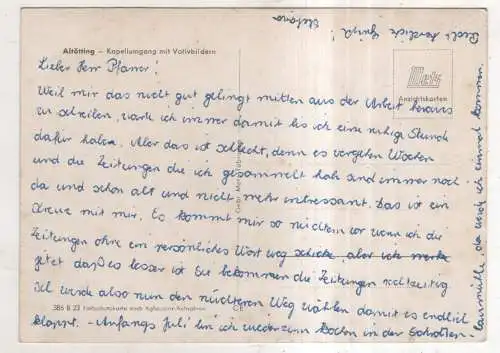 Altötting – Kapellumgang mit Votivbildern
Lieber Herr Pfarrer!
Weil mir das nicht gut gelingt mitten aus der Arbeit heraus
zu schreiben, warte ich immer damit bis ich eine ruhige Stunde
dafür habe. Aber das ist schlecht, denn es vergehen Wochen
und die Zeitungen die ich gesammelt hab sind immer noch
da und schon alt und nicht mehr interessant. Das ist ein
Kreuz mit mir. Es kommt mir so nüchtern vor wenn ich die
Zeitungen ohne ein persönliches Wort weg schicke aber ich merke
jetzt daß es besser ist Sie bekommen die Zeitungen rechtzeitig
Ich werde also nun den nüchternen Weg wählen damit es endlich
klappt. – Anfangs Juli bin ich wieder zum Kochen in der
mühle, da werde ich einmal kommen.
Recht herzliche Grüße!
Stefanie
Metz
Ansichtskarten
Gebr. Metz, Tübingen
386 B 23 Farbaufnahme nach Agfacolor-Aufnahmen
CE